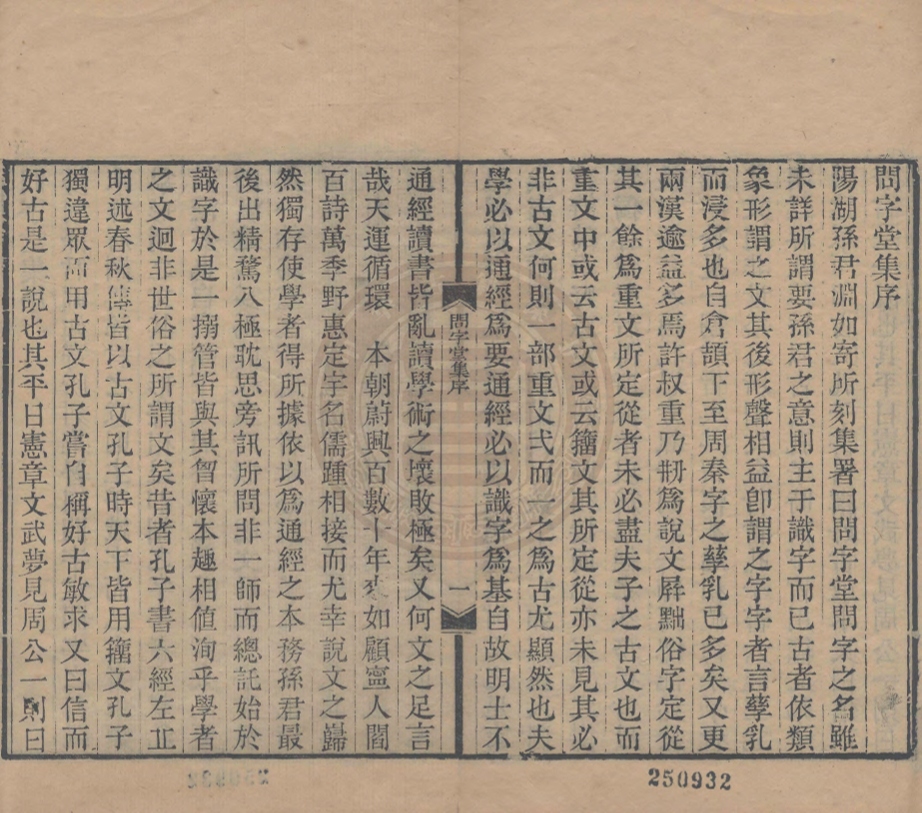 問字堂集序
陽湖孫君淵如寄所刻集署曰問字堂問字之名雖
未詳所謂要孫君之意則主于識字而已古者依類
象形謂之文其後形聲相益卽謂之字字者言孳乳
而浸多也自倉頡下至周秦字之孳乳已多矣又更
兩漢逾益多焉許叔重乃刱爲說文屛黜俗字定從
其一餘爲重文所定從者未必盡夫子之古文也而
重文中或云古文或云籒文其所定從亦未見其必
非古文何則一部重文弍而一之爲古尤顯然也夫
學必以通經爲要通經必以識字爲基自故明士不
問字堂集序
一
通經讀書皆亂讀學術之壞敗極矣又何文之足言
哉天運循環 本朝蔚興百數十年來如顧寧人閻
百詩萬季野惠定宇名儒踵相接而尤幸說文之歸
然獨存使學者得所據依以爲通經之本務孫君最
後出精騖八極耽思旁訊所問非一師而總託始於
識字於是一搦管皆與其胷懷本趣相値洵乎學者
之文迥非世俗之所謂文矣昔者孔子書六經左丘
明述春秋傳皆以古文孔子時天下皆用籒文孔子
獨違眾而用古文孔子嘗自稱好古敏求又曰信而
好古是一說也其平日憲章文武夢見周公一則曰
250932